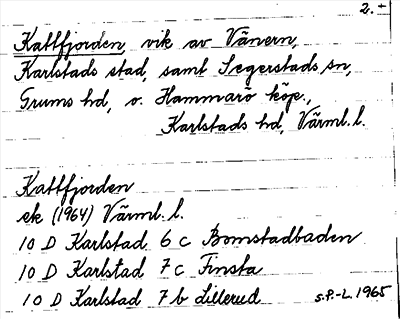 2.-
Kattfjorden, vik av Vänern,
Karlstads stad, samt Segerstads sn,
Grums hd, o. Hammarö köp.,
Karlstads hd, Värml. l.
Kattfjorden
ek (1964) Värml. l.
10 D Karlstad 6 c Bomstadbaden
10 D Karlstad 7 c Finsta
10 D Karlstad 7 b Lillerud
S.P.-L. 1965